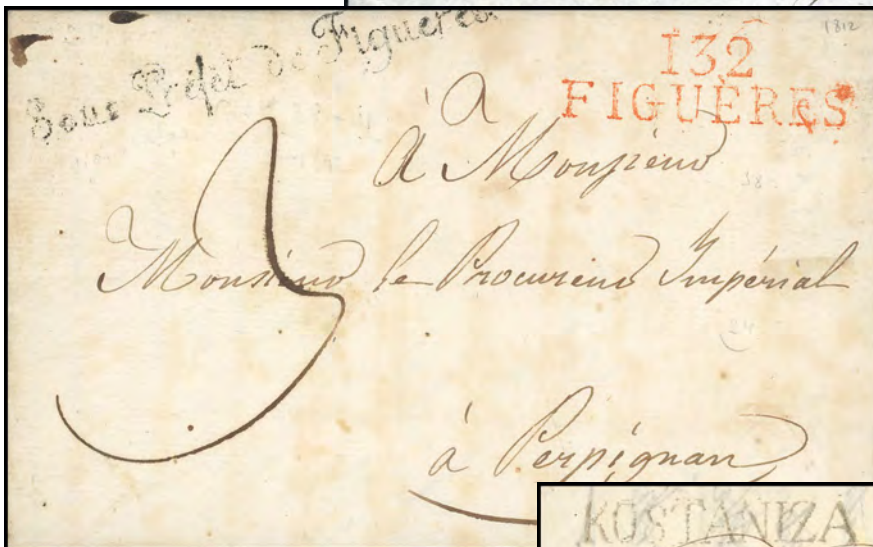 Sous Préfet de Figueres
1812
132
FIGUÈRES
à Monsieur
38
Monsieur le Procureur Impérial
3
à Perpignan
KOSTANIZA